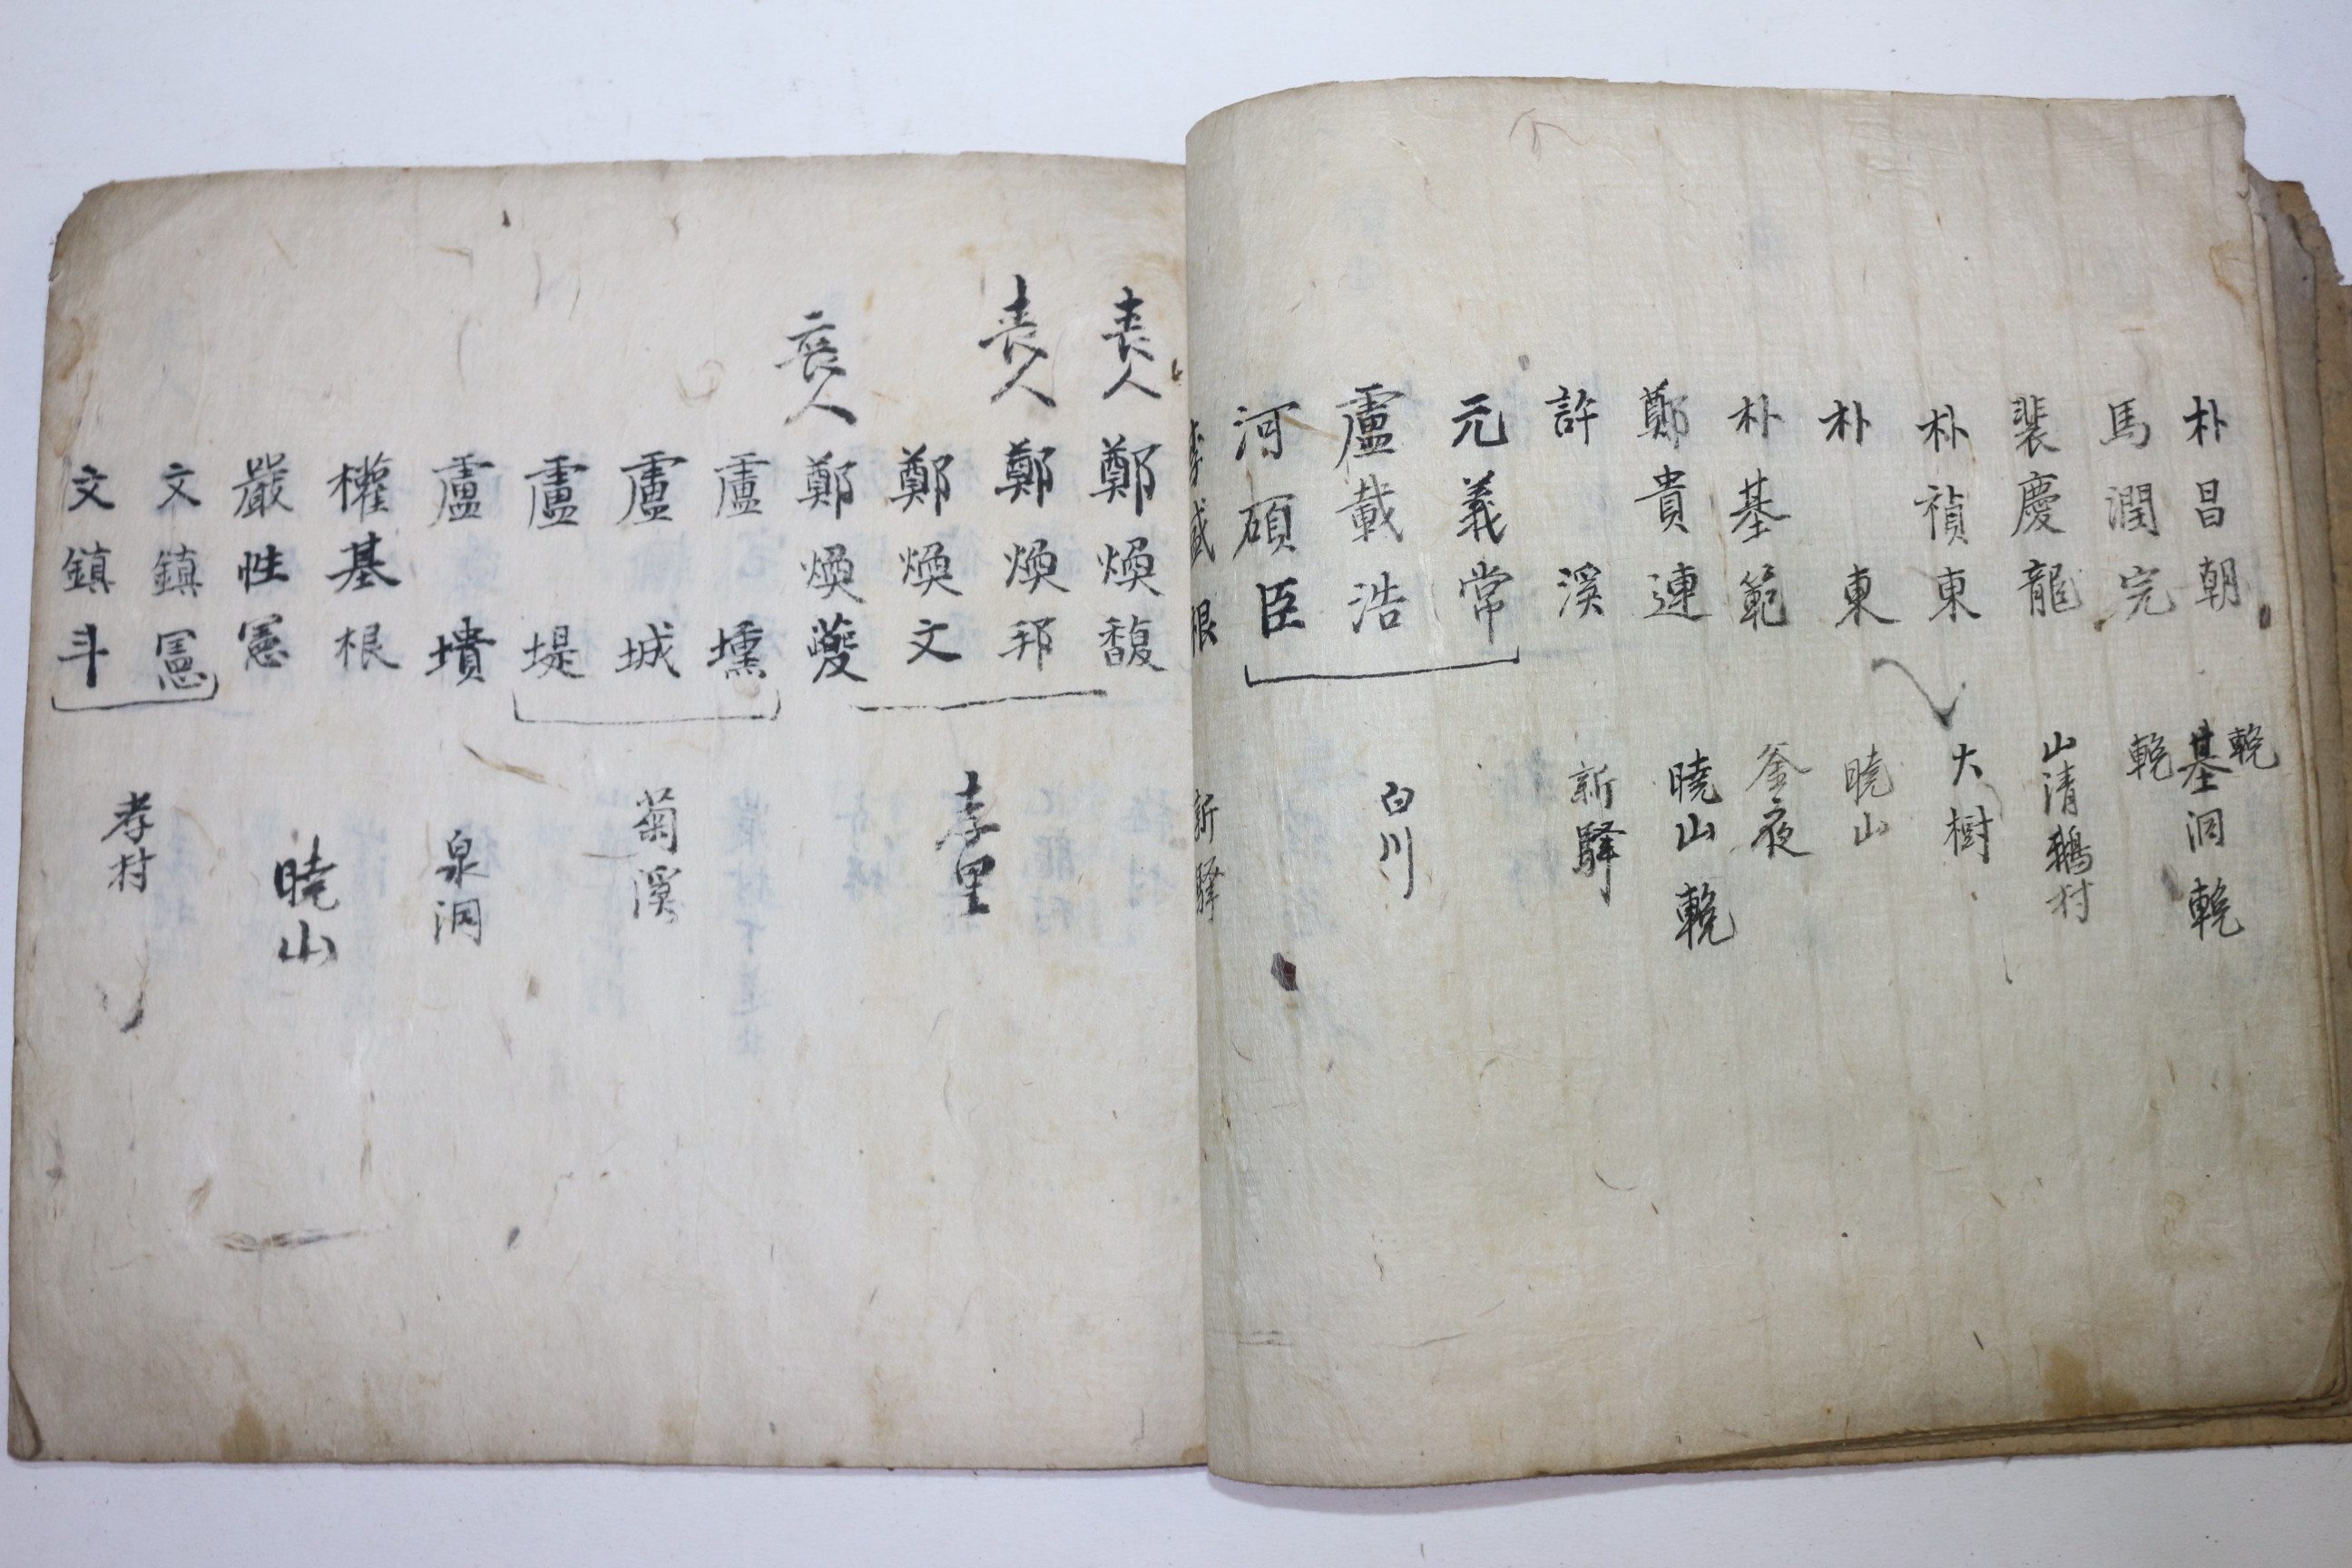 朴昌朝 基洞 輓 輓
馬潤完 輓
裴慶龍 山清鵝村
朴禎東 大樹
朴東 曉山
朴基範 釜夜
鄭貴連 曉山 輓
許溪 新驛
元義常
盧載浩 白川
河碩臣
根 新驛
喪人 鄭煥馥
喪人 鄭煥邦
鄭煥文 李里
喪人 鄭煥夔
盧壎
盧城 菊溪
盧堤
盧墳 泉洞
權基根
嚴性憲 曉山
文鎮憲
文鎮斗 孝村